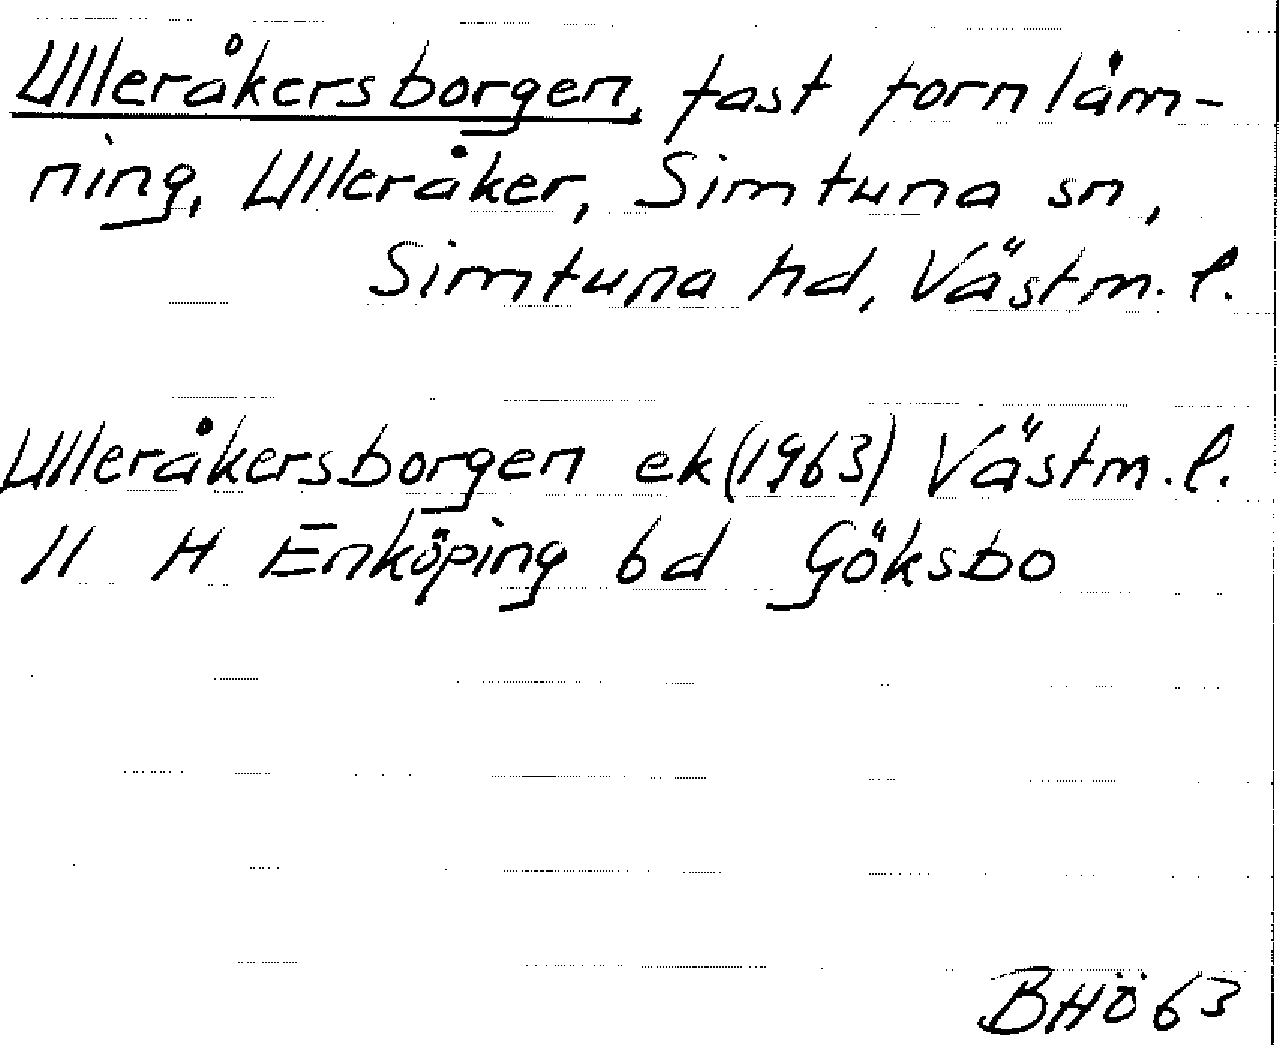 Ulleråkersborgen, fast fornläm-
ning, Ulleråker, Simtuna sn,
Simtuna hd, Västm. l.
Ulleråkersborgen ek (1963) Västm. l.
11 H Enköping 6d Göksbo
BHÖ 63